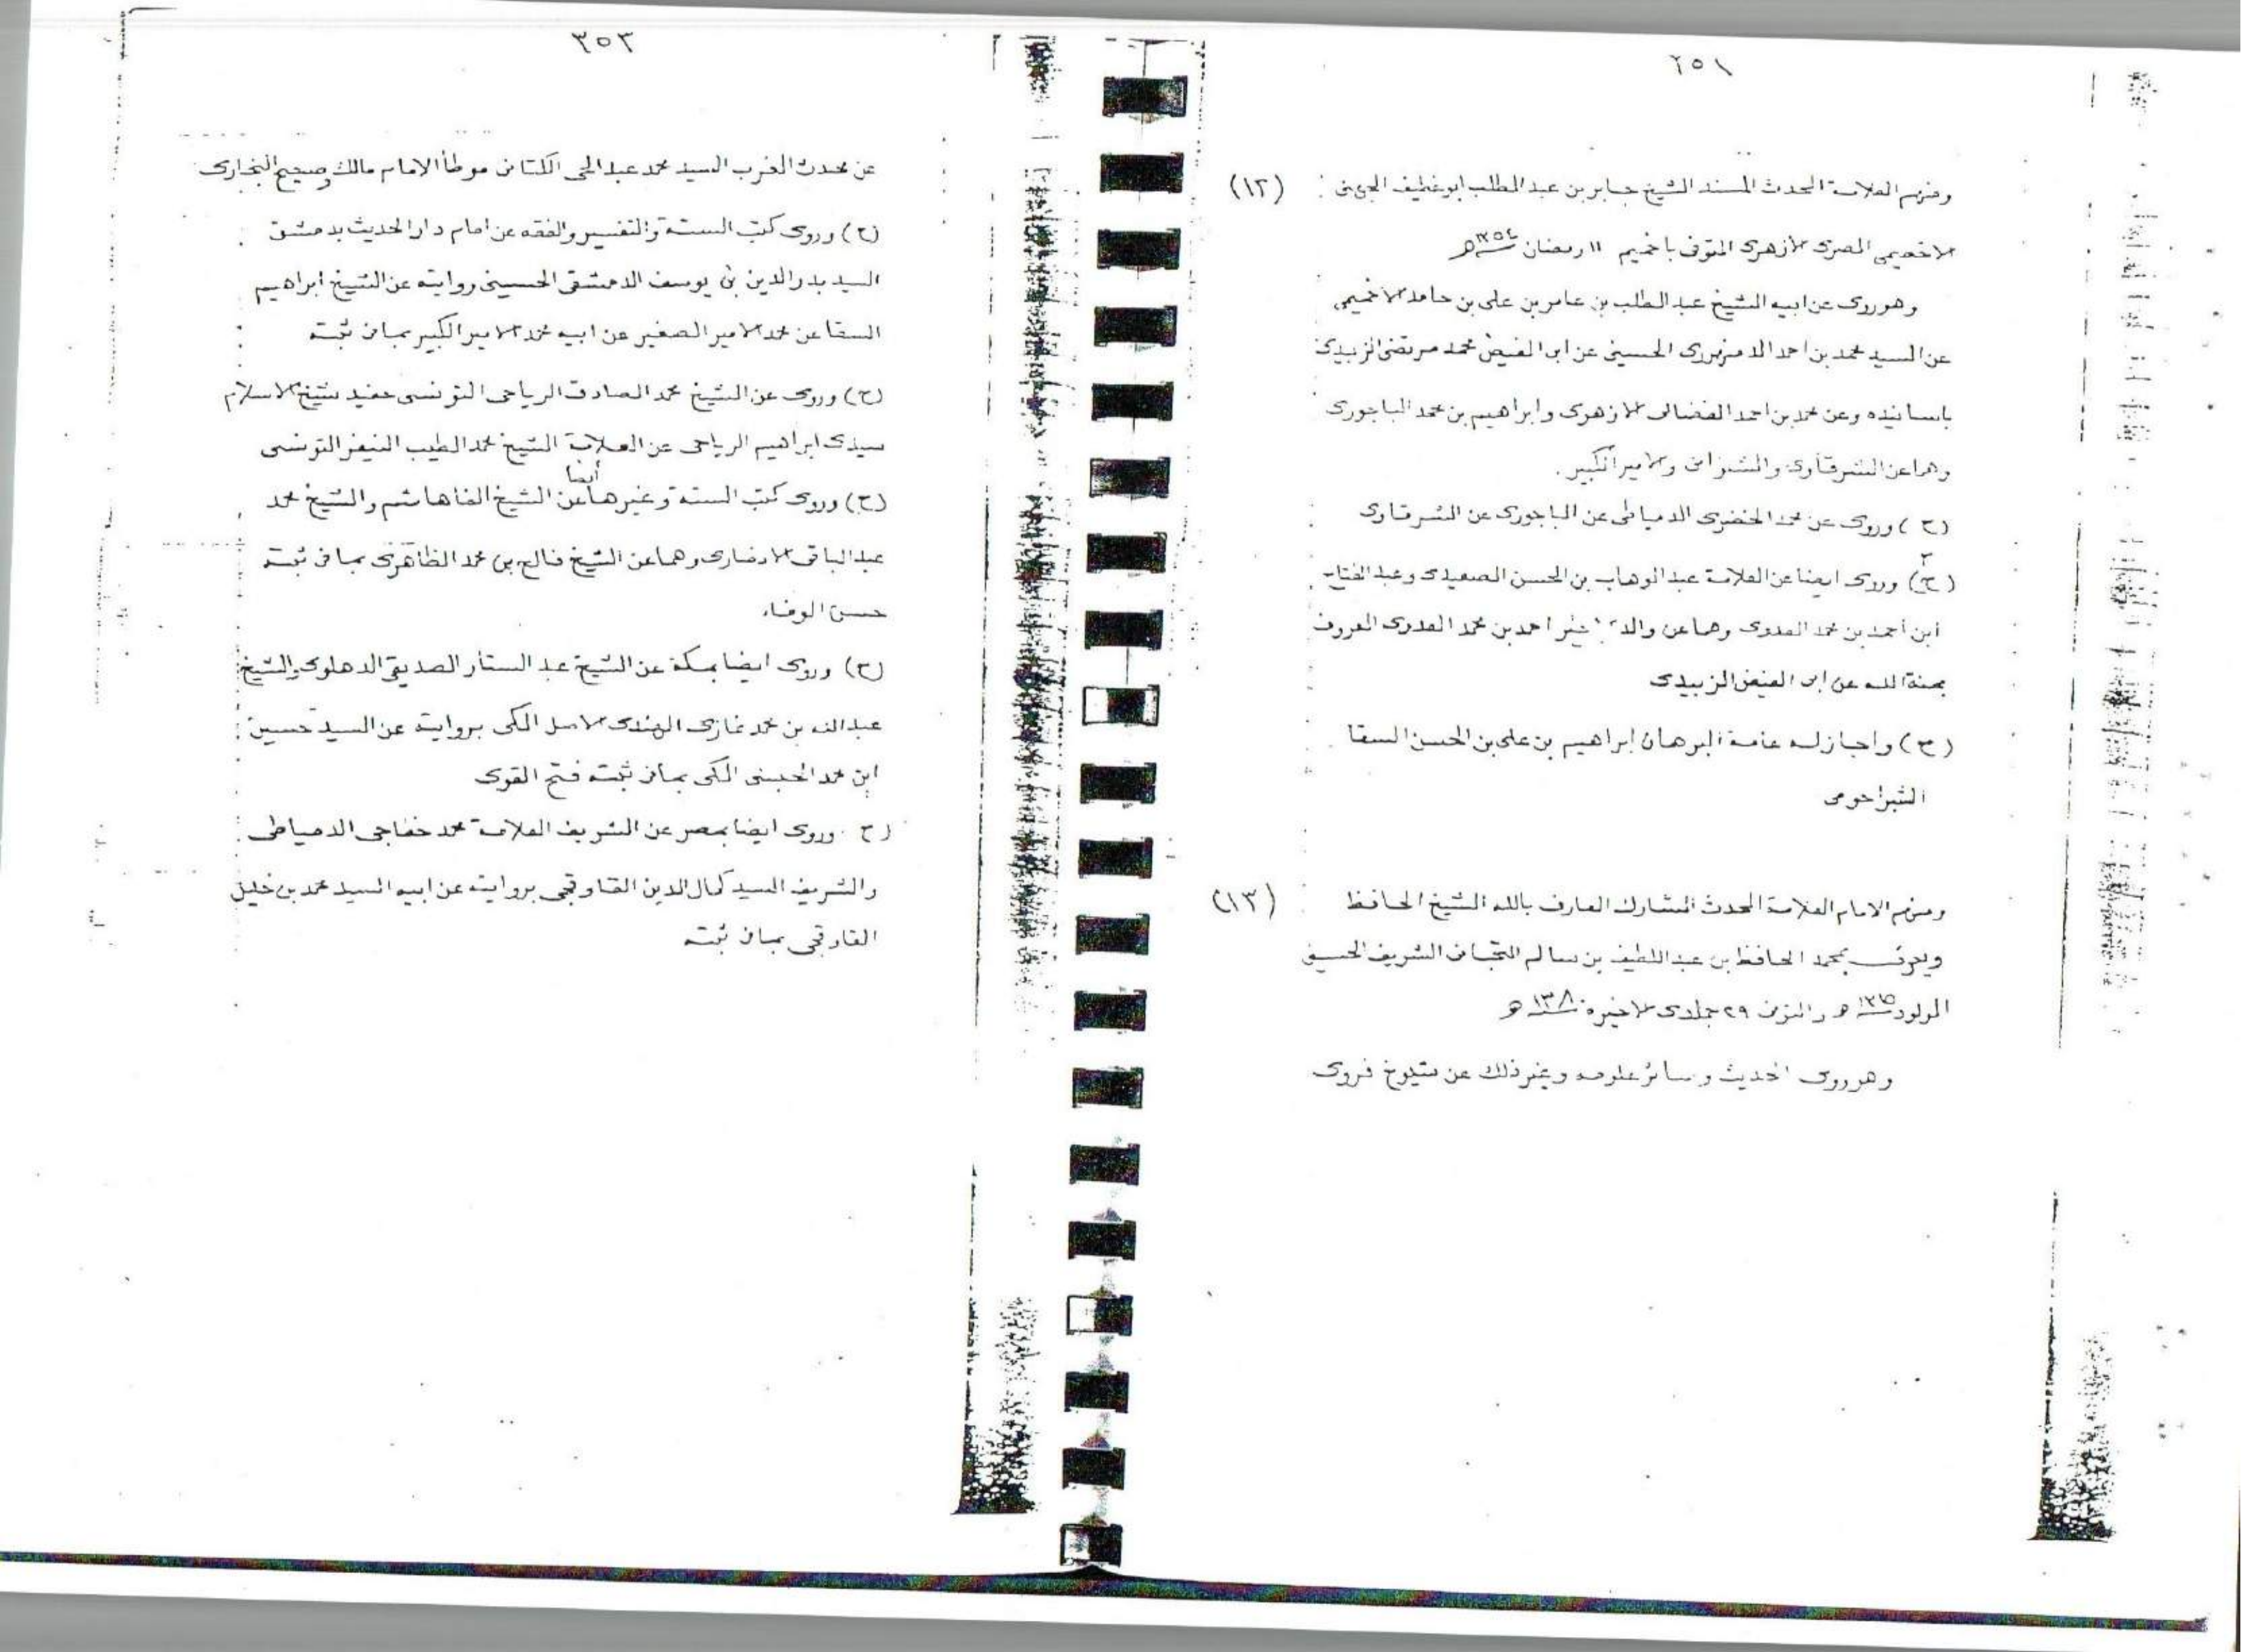 ٢٥١
(١٢) ومنهم العلامة المحدث المسند الشيخ جابر بن عبد المطلب ابو غطيف الجهني
الاخميمي المصري الازهري المتوفى باخميم ١١ رمضان ١٣٥٤هـ
وهو روى عن ابيه الشيخ عبد المطلب بن عامر بن علي بن حامد الاخميمي
عن السيد محمد بن احمد الدمنهوري الحسيني عن ابي الفيض محمد مرتضى الزبيدي
باسانيده وعن محمد بن احمد الفضالى الازهرى وابراهيم بن محمد الباجورى
وهما عن الشرقاوي والشنواني والامير الكبير.
(ح) وروى عن محمد الخضري الدمياطى عن الباجورى عن الشرقاوى
(ح) وروى ايضا عن العلامة عبد الوهاب بن الحسن الصعيدى وعبد الفتاح
ابن أحمد بن محمد العدوى وهما عن والد احمد بن محمد العدوى المعروف
بمنة الله عن ابي الفيض الزبيدى
(ح) واجاز له عامة البرهان إبراهيم بن على بن الحسن السقا
الشبراخومى
(١٣) ومنهم الامام العلامة المحدث المشارك العارف بالله الشيخ الحافظ
ويعرف بمحمد الحافظ بن عبد اللطيف بن سالم التجانى الشريف الحسيني
المولود ١٣١٥ هـ والمتوفى ٢٩ جمادى الاخيرة ١٣٨ هـ
وهو روى الحديث وسائر علومه وغير ذلك عن شيوخ فروى
٣٥٣
عن محدث المغرب السيد محمد عبد الحي الكتاني موطأ الامام مالك وصحيح البخارى
(ح) وروى كتب السنة والتفسير والفقه عن امام دار الحديث بدمشق
السيد بدر الدين بن يوسف الدمشقى الحسينى روايته عن الشيخ ابراهيم
السقا عن محمد الامير الصغير عن ابيه محمد الامير الكبير بما فى ثبته
(ح) وروى عن الشيخ محمد الصادق الرياحى التونسى حفيد شيخ الاسلام
سيدى ابراهيم الرياحى عن العلامة الشيخ محمد الطيب النيفر التونسى
(ح) وروى كتب السنة وغيرها أيضا عن الشيخ الفاهاشم والشيخ محمد
عبد الباقى الانصارى وهما عن الشيخ فالح بن محمد الظاهرى بما فى ثبته
حسن الوفاء
(ح) وروى ايضا بمكة عن الشيخ عبد الستار الصديقى الدهلوى والشيخ
عبد الله بن محمد غازى الهندى الاصل المكى بروايته عن السيد حسين
ابن محمد الحبشى المكى بما فى ثبته فتح القوى
(ح وروى ايضا بمصر عن الشريف العلامة محمد خفاجى الدمياطى
والشريف السيد كمال الدين القاوقجى بروايته عن ابيه السيد محمد بن خليل
القاوقجى بما فى ثبته